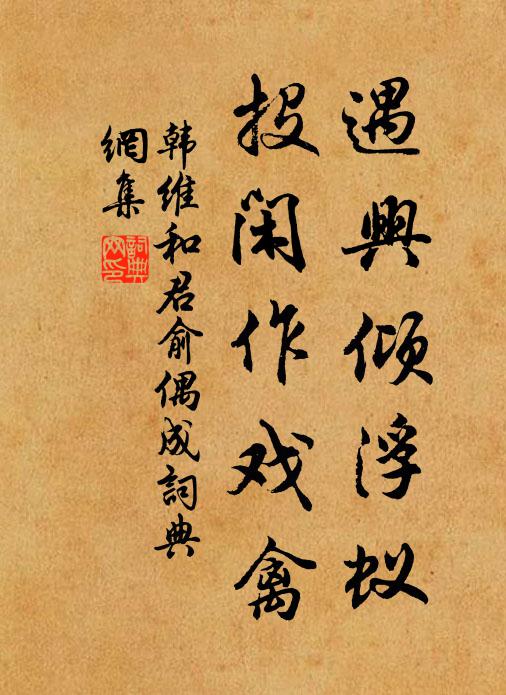 遇興傾浮蚁
投閑作戏禽
韩維和君俞偶成詞典
網集
詞典
网印